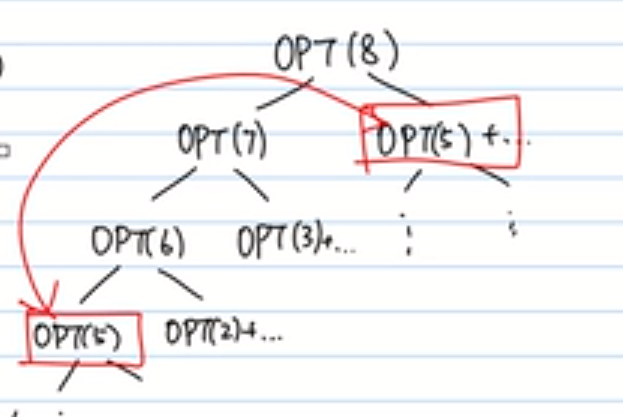 OPT(8)
OPT(7) OPT(5) +...
OPT(6) OPT(3)+...
OPT(5) OPT(2)+...